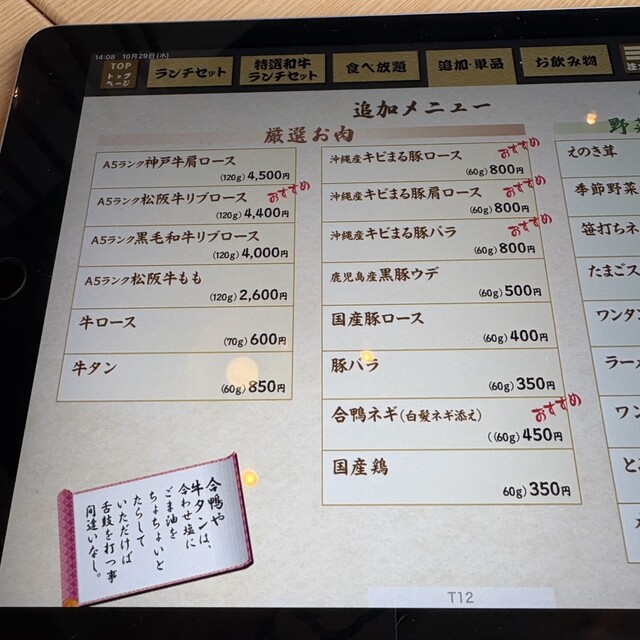 14:08 10月29日(水)
TOP
トップ
ページ
ランチセット
特選和牛
ランチセット
食べ放題
追加・単品
お飲み物
追加メニュー
厳選お肉
A5ランク神戸牛肩ロース
(120g) 4,500円
A5ランク松阪牛リブロース
おすすめ
(120g) 4,400円
A5ランク黒毛和牛リブロース
(120g) 4,000円
A5ランク松阪牛もも
(120g) 2,600円
牛ロース
(70g) 600円
牛タン
(60g) 850円
沖縄産キビまる豚ロース
おすすめ
(60g) 800円
沖縄産キビまる豚肩ロース
おすすめ
(60g) 800円
沖縄産キビまる豚バラ
おすすめ
(60g) 800円
鹿児島産黒豚ウデ
(60g) 500円
国産豚ロース
(60g) 400円
豚バラ
(60g) 350円
合鴨ネギ(白髪ネギ添え)
おすすめ
((60g) 450円
国産鶏
60g) 350円
野菜
えのき茸
季節野菜
笹打ちネ
たまごス
ワンタン
ラーメ
ワン
合鴨や
牛タンは、
合わせ塩に
ごま油を
ちょちょいと
たらして
いただけば
舌鼓を打つ事
間違いなし。
T12